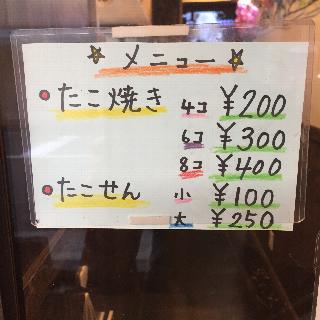 メニュー
たこ焼き 4コ ¥200
6コ ¥300
8コ ¥400
たこせん 小 ¥100
大 ¥250